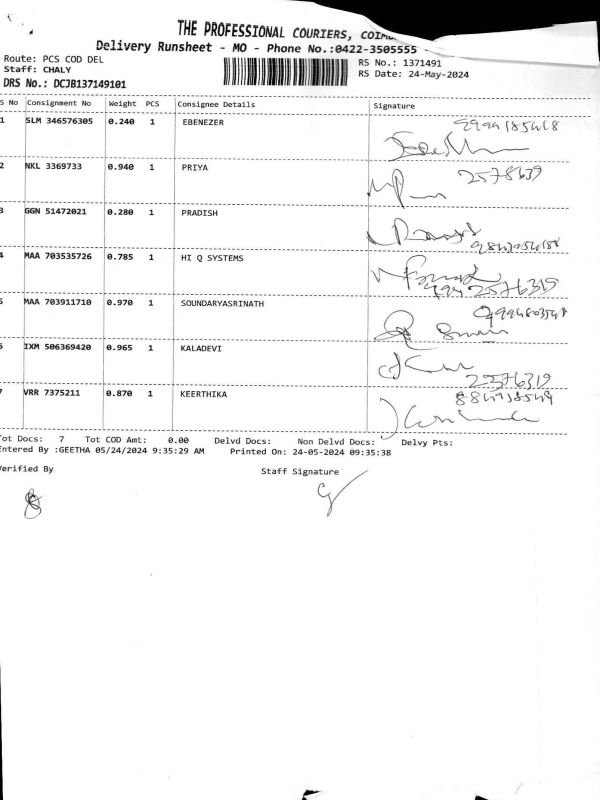 THE PROFESSIONAL COURIERS,
Delivery Runsheet - MO - Phone No.:0422-3505555 -
Route: PCS COD DEL
RS No.: 1371491
Staff: CHALY
RS Date: 24-May-2024
DRS No.: DCJB137149101
S No Consignment No Weight PCS Consignee Details Signature
1 SLM 346576305 0.240 1 EBENEZER
2 NKL 3369733 0.940 1 PRIYA 2578639
3 GGN 51472021 0.280 1 PRADISH
4 MAA 703535726 0.785 1 HI Q SYSTEMS 2576319
5 MAA 703911710 0.970 1 SOUNDARYASRINATH
6 IXM 506369420 0.965 1 KALADEVI 2576319
7 VRR 7375211 0.870 1 KEERTHIKA
Tot Docs: 7 Tot COD Amt: 0.00 Delvd Docs: Non Delvd Docs: Delvy Pts:
Entered By :GEETHA 05/24/2024 9:35:29 AM Printed On: 24-05-2024 09:35:38
Verified By Staff Signature